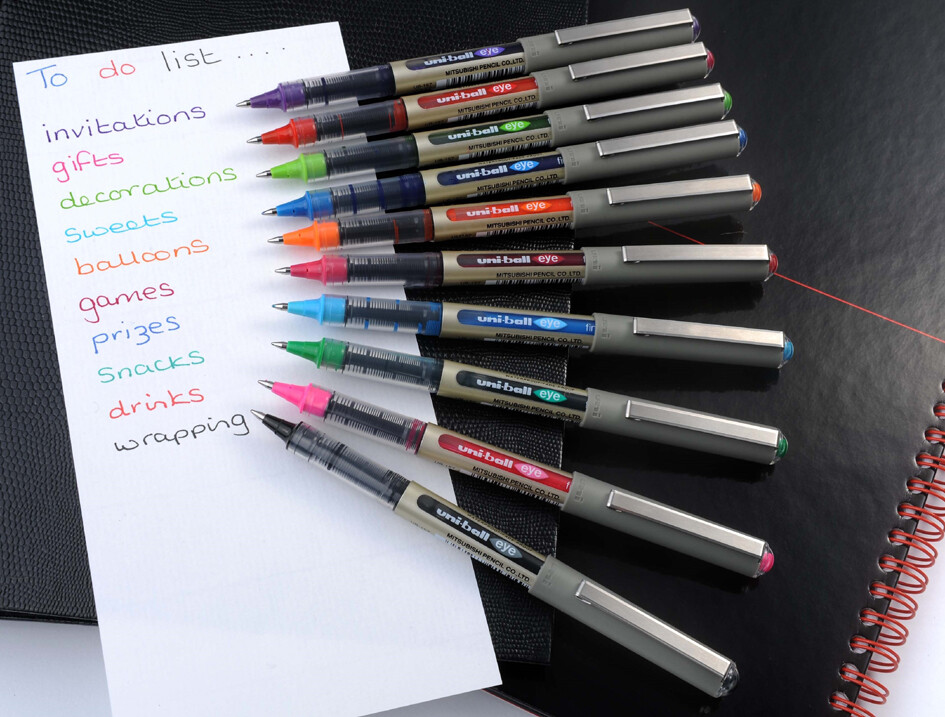 To do list ....
invitations
gifts
decorations
sweets
balloons
games
prizes
snacks
drinks
wrapping
uni-ball eye
MITSUBISHI PENCIL CO.,LTD.
uni-ball eye
MITSUBISHI PENCIL CO.,LTD.
uni-ball eye
MITSUBISHI PENCIL CO.,LTD.
uni-ball eye
MITSUBISHI PENCIL CO.,LTD.
uni-ball eye
MITSUBISHI PENCIL CO.,LTD.
uni-ball eye
MITSUBISHI PENCIL CO.,LTD.
uni-ball eye
uni-ball eye
MITSUBISHI PENCIL CO.,LTD.
uni-ball eye
MITSUBISHI PENCIL CO.,LTD.
uni-ball eye
MITSUBISHI PENCIL CO.,LTD.